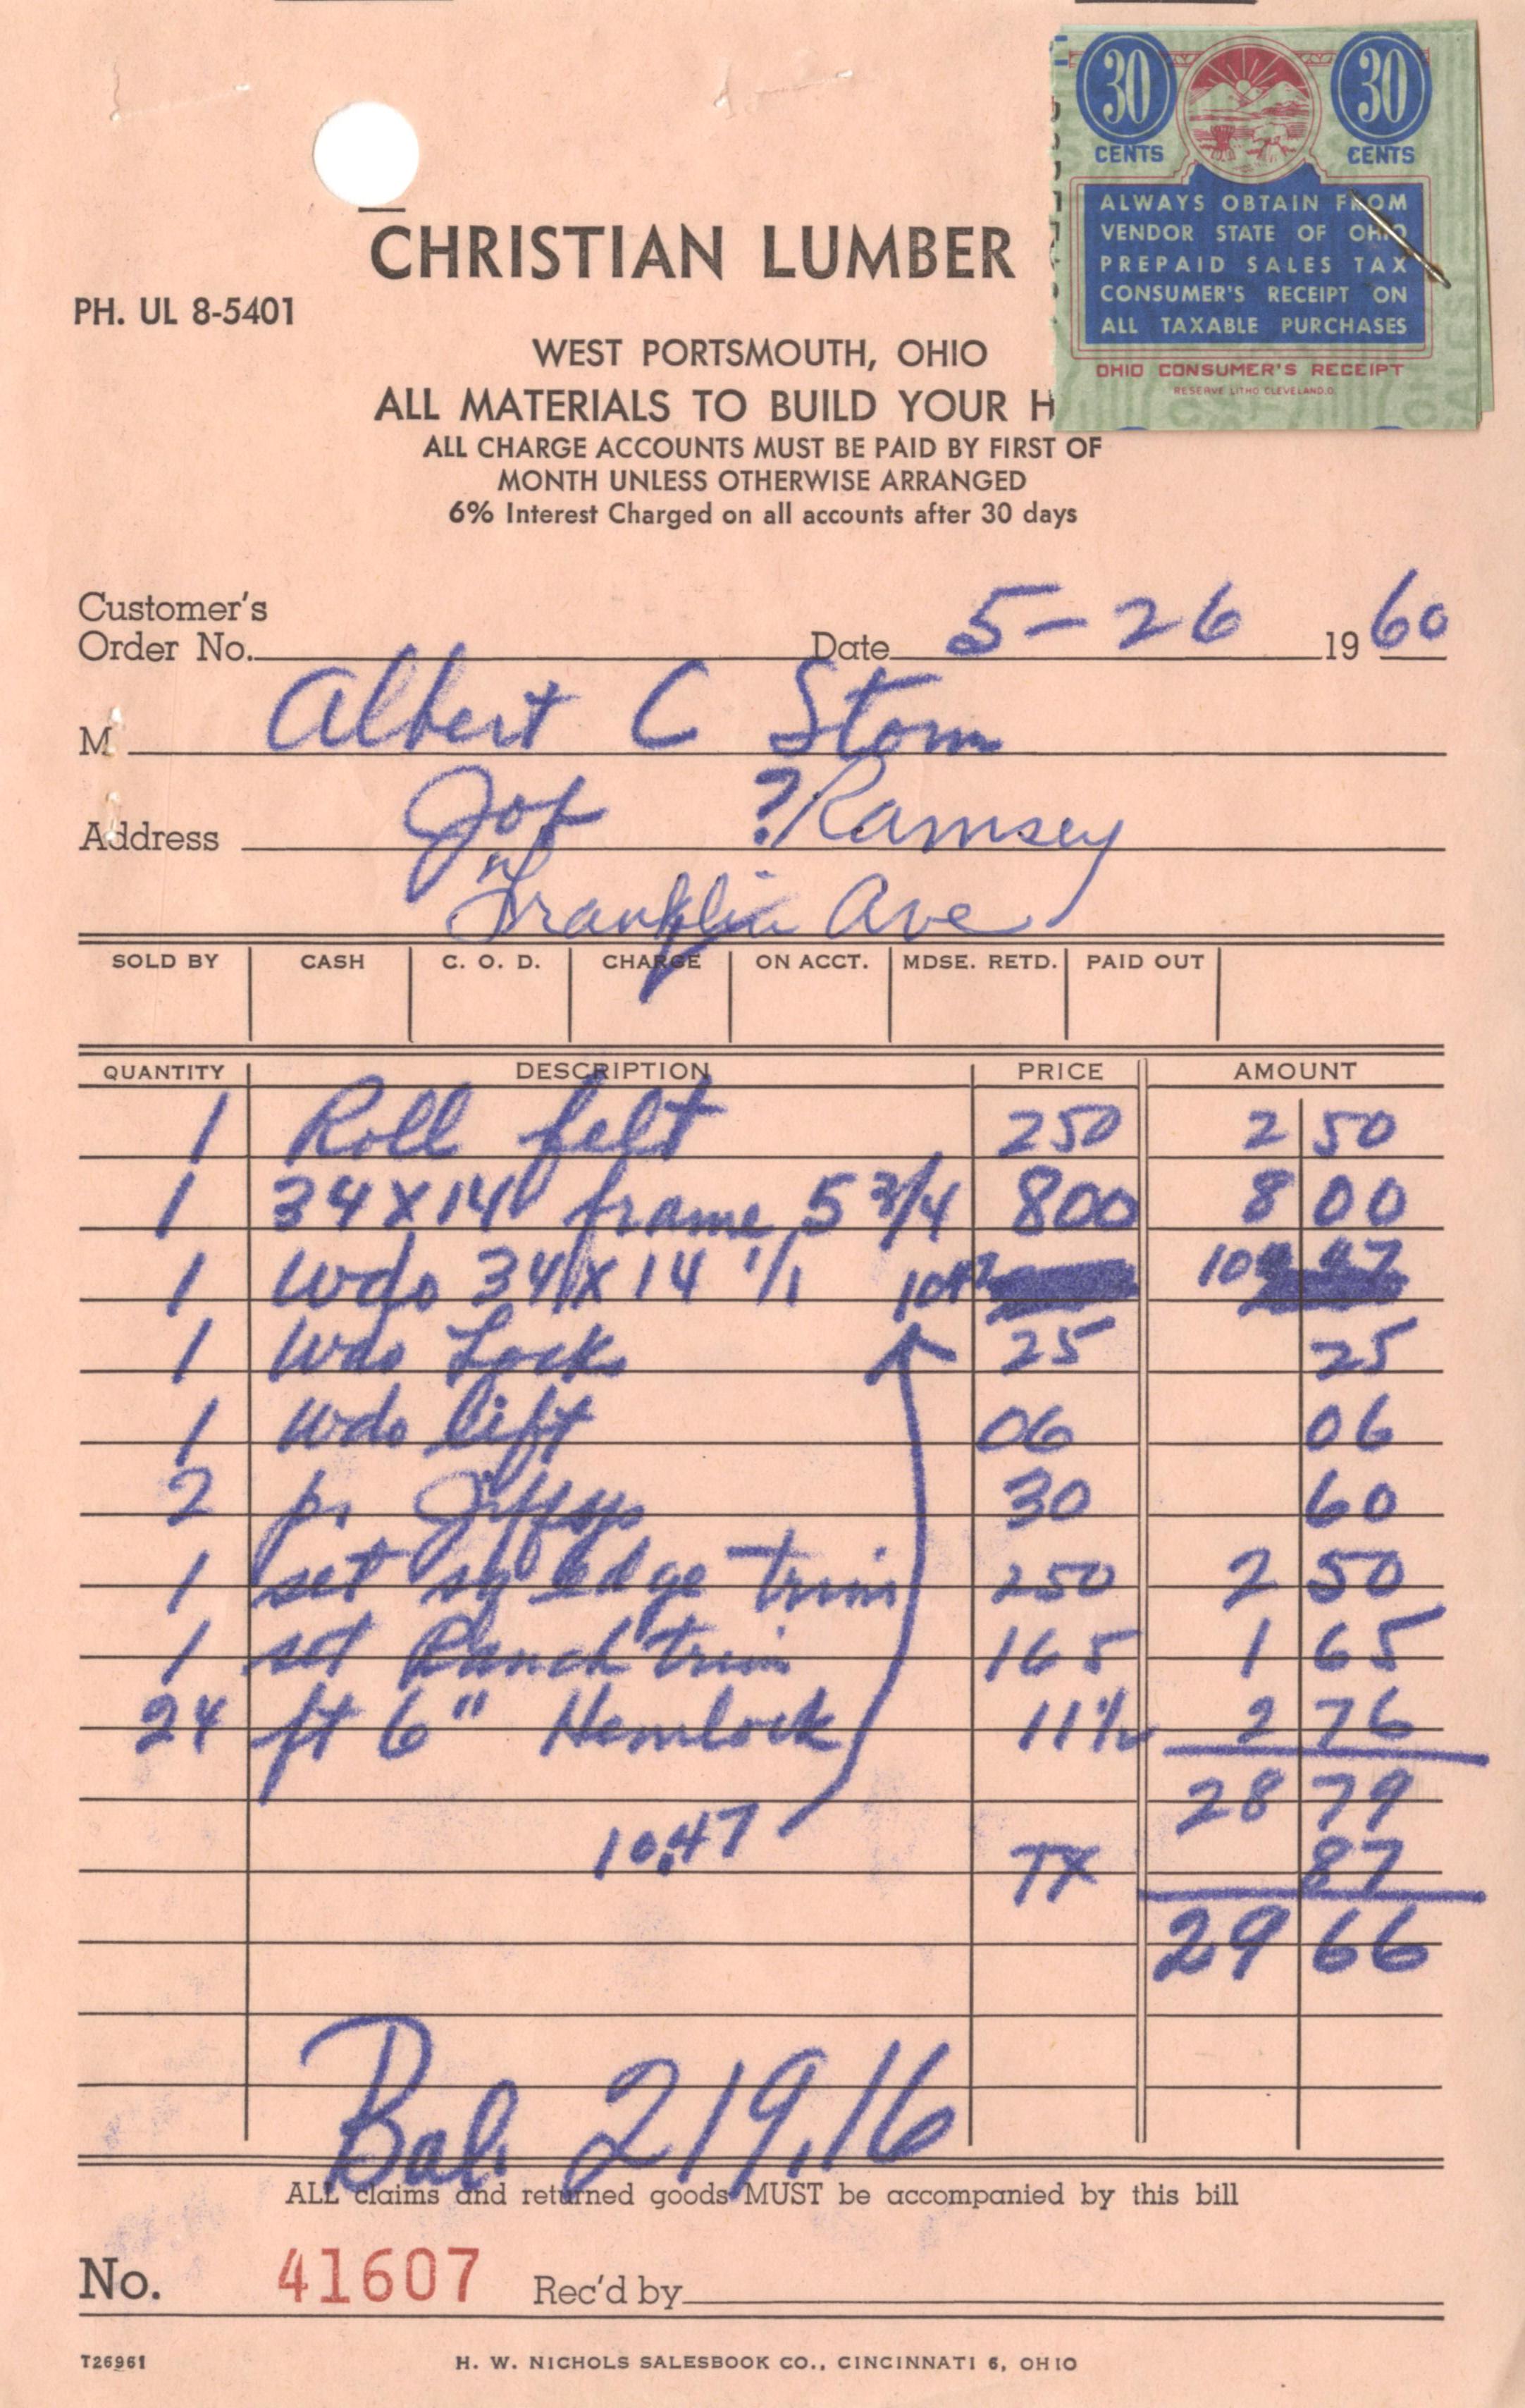 30 CENTS 30 CENTS
ALWAYS OBTAIN FROM
VENDOR STATE OF OHIO
PREPAID SALES TAX
CONSUMER'S RECEIPT ON
ALL TAXABLE PURCHASES
OHIO CONSUMER'S RECEIPT
RESERVE LITHO CLEVELAND.O.
CHRISTIAN LUMBER
PH. UL 8-5401
WEST PORTSMOUTH, OHIO
ALL MATERIALS TO BUILD YOUR H
ALL CHARGE ACCOUNTS MUST BE PAID BY FIRST OF
MONTH UNLESS OTHERWISE ARRANGED
6% Interest Charged on all accounts after 30 days
Customer's
Order No. Date 5-26 1960
M Albert C Storm
Address ? Ramsey
Franklin Ave
SOLD BY CASH C. O. D. CHARGE ON ACCT. MDSE. RETD. PAID OUT
QUANTITY DESCRIPTION PRICE AMOUNT
1 Roll felt 250 2 50
1 34X14 frame 5 3/4 800 8 00
1 Wdo 34X14 1/1 1047 10 47
1 Wdo Lock 25 25
1 Wdo lift 06 06
2 pr Jiffys 30 60
1 set sq Edge trim 250 2 50
1 set Ranch trim 165 1 65
24 ft 6" Hemlock 11½ 2 76
28 79
10.47 TX 87
29 66
Bal. 219.16
ALL claims and returned goods MUST be accompanied by this bill
No. 41607 Rec'd by
T26961 H. W. NICHOLS SALESBOOK CO., CINCINNATI 6, OHIO